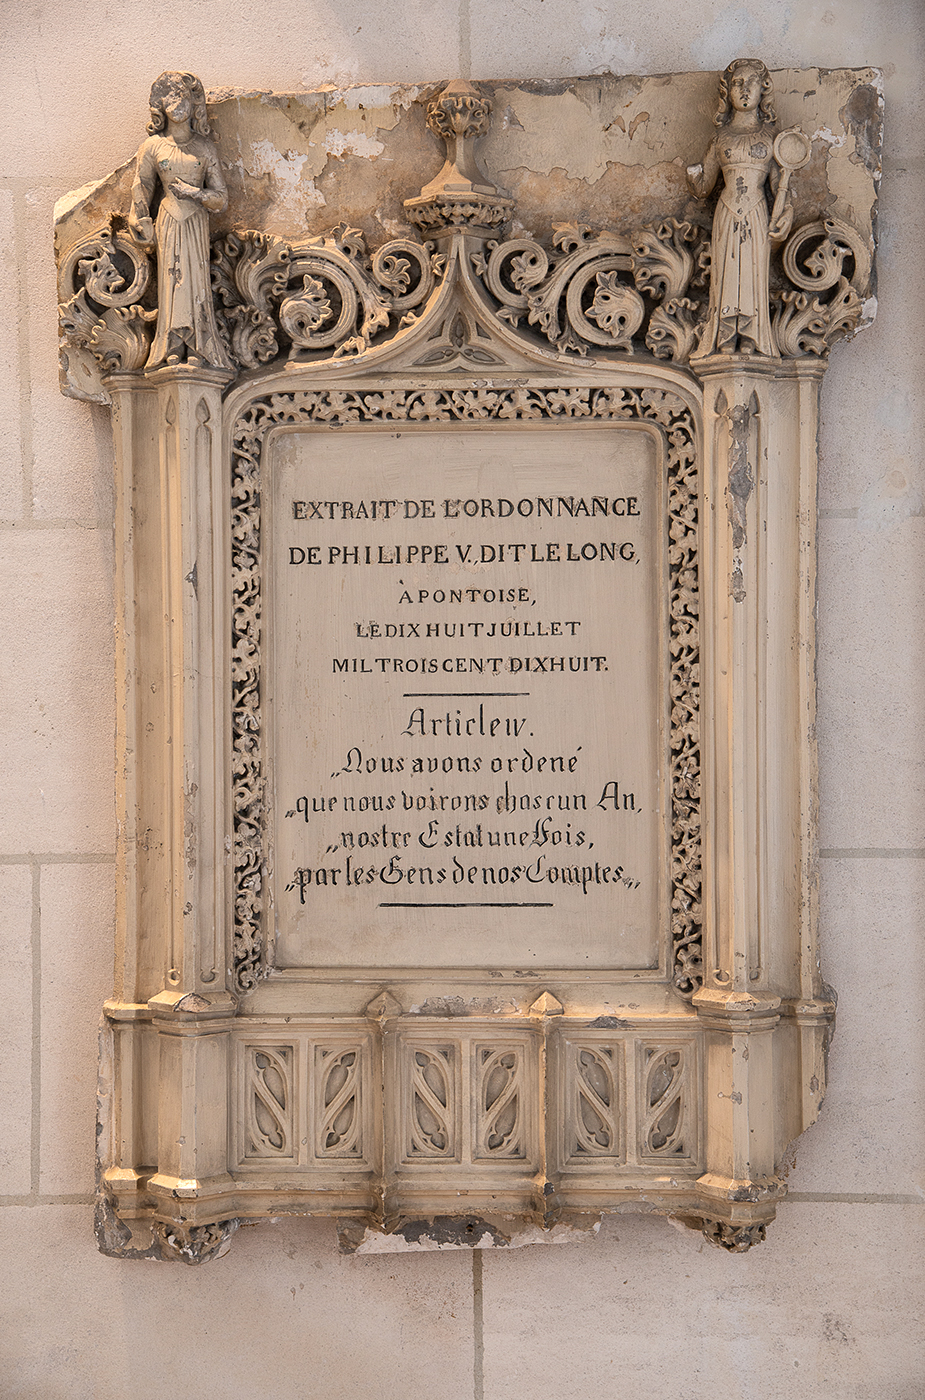 EXTRAIT DE L'ORDONNANCE
DE PHILIPPE V., DIT LE LONG,
À PONTOISE,
LE DIX HUIT JUILLET
MIL TROIS CENT DIX HUIT.
Article IV.
„Nous avons ordené
„que nous voirons chascun An,
„nostre Estat une Fois,
„par les Gens de nos Comptes„.